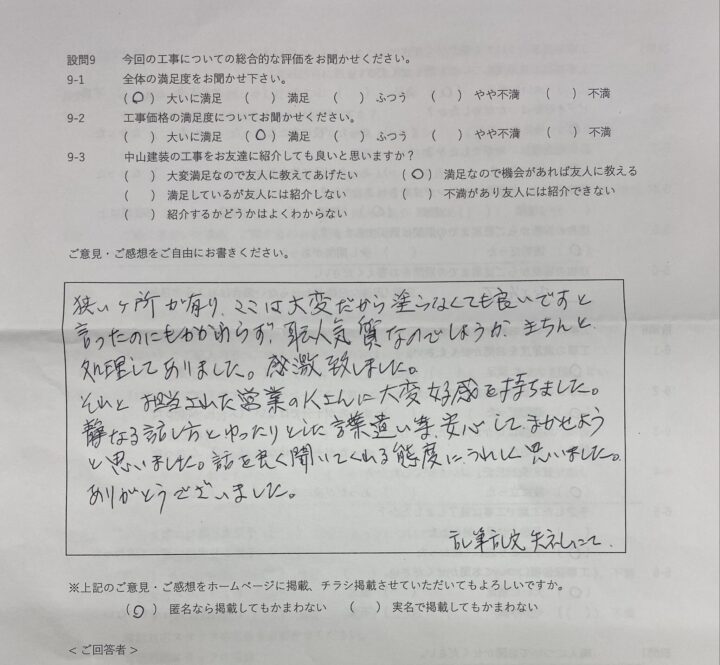 設問9 今回の工事についての総合的な評価をお聞かせください。
9-1 全体の満足度をお聞かせ下さい。
(○) 大いに満足 ( ) 満足 ( ) ふつう ( ) やや不満 ( ) 不満
9-2 工事価格の満足度についてお聞かせください。
( ) 大いに満足 (○) 満足 ( ) ふつう ( ) やや不満 ( ) 不満
9-3 中山建装の工事をお友達に紹介しても良いと思いますか？
( ) 大変満足なので友人に教えてあげたい (○) 満足なので機会があれば友人に教える
( ) 満足しているが友人には紹介しない ( ) 不満があり友人には紹介できない
( ) 紹介するかどうかはよくわからない
ご意見・ご感想をご自由にお書きください。
狭いヶ所が有り、ここは大変だから塗らなくても良いですと
言ったのにもかかわらず、職人気質なのでしょうか、きちんと
処理してありました。感激致しました。
それと 担当された営業のKさんに大変好感を持ちました。
静なる話し方とゆったりとした言葉遣い等、安心してまかせよう
と思いました。話を良く聞いてくれる態度にうれしく思いました。
ありがとうございました。
乱筆乱文 失礼にて、
※上記のご意見・ご感想をホームページに掲載、チラシ掲載させていただいてもよろしいですか。
(○) 匿名なら掲載してもかまわない ( ) 実名で掲載してもかまわない
＜ご回答者＞